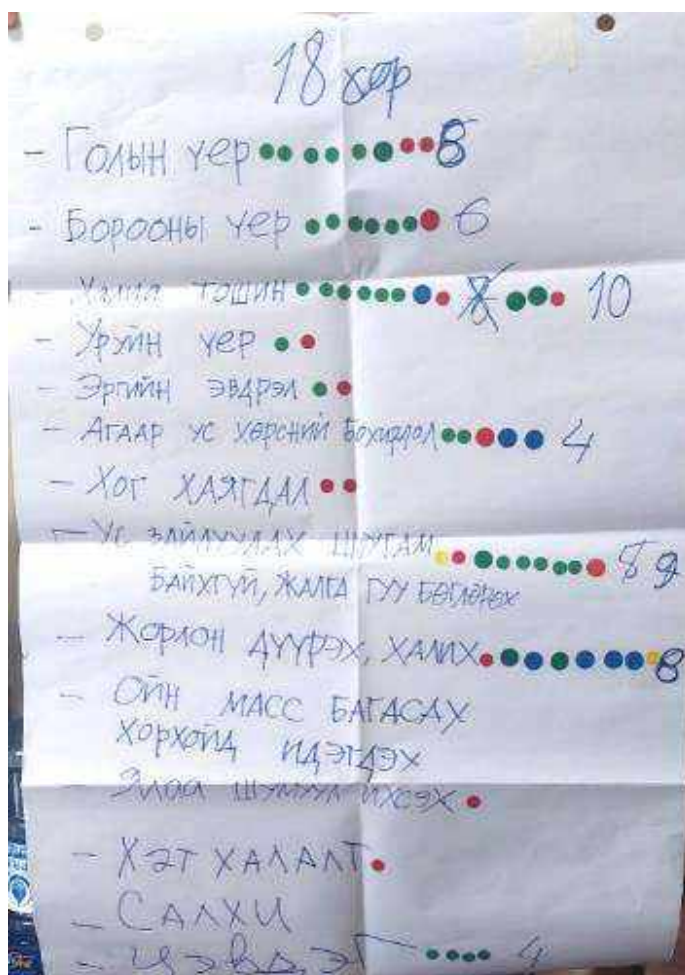 18 хор
- Голын үер 8
- Борооны үер 6
- Халиа тошин 8 10
- Уруйн үер
- Эргийн эвдрэл
- Агаар ус хөрсний бохирдол 4
- Хог хаягдал
- Ус зайлуулах шугам 8 9
байхгүй, жалга гуу бөглөрөх
- Жорлон дүүрэх, халих 8
- Ойн масс багасах
хорхойд идэгдэх
- Ялаа шумуул ихсэх
- Хэт халалт
- Салхи
- Цэвдэг 4